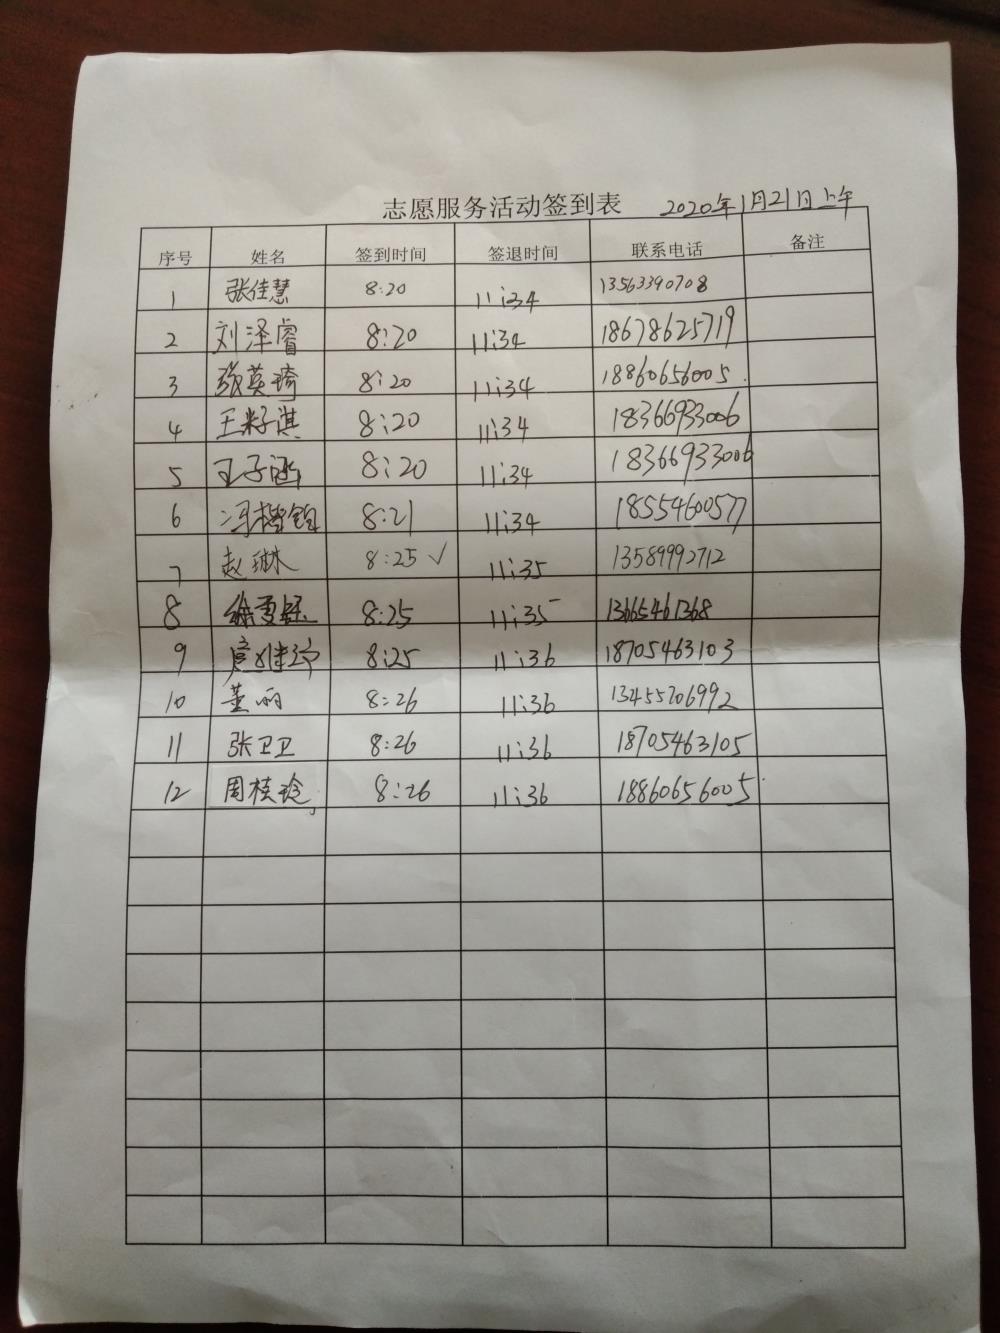 志愿服务活动签到表 2020年1月21日上午
序号 姓名 签到时间 签退时间 联系电话 备注
1 张佳慧 8:20 11:34 13563390708
2 刘泽睿 8:20 11:34 18678625719
3 张英琦 8:20 11:34 18860656005
4 王籽淇 8:20 11:34 18366933006
5 王子涵 8:20 11:34 18366933006
6 冯楷 8:21 11:34 18554600577
7 赵琳 8:25 √ 11:35 13589992712
8 徐 8:25 11:35 13665461368
9 8:25 11:36 18705463103
10 董丽 8:26 11:36 13455706992
11 张卫卫 8:26 11:36 18705463105
12 周桂玲 8:26 11:36 18860656005